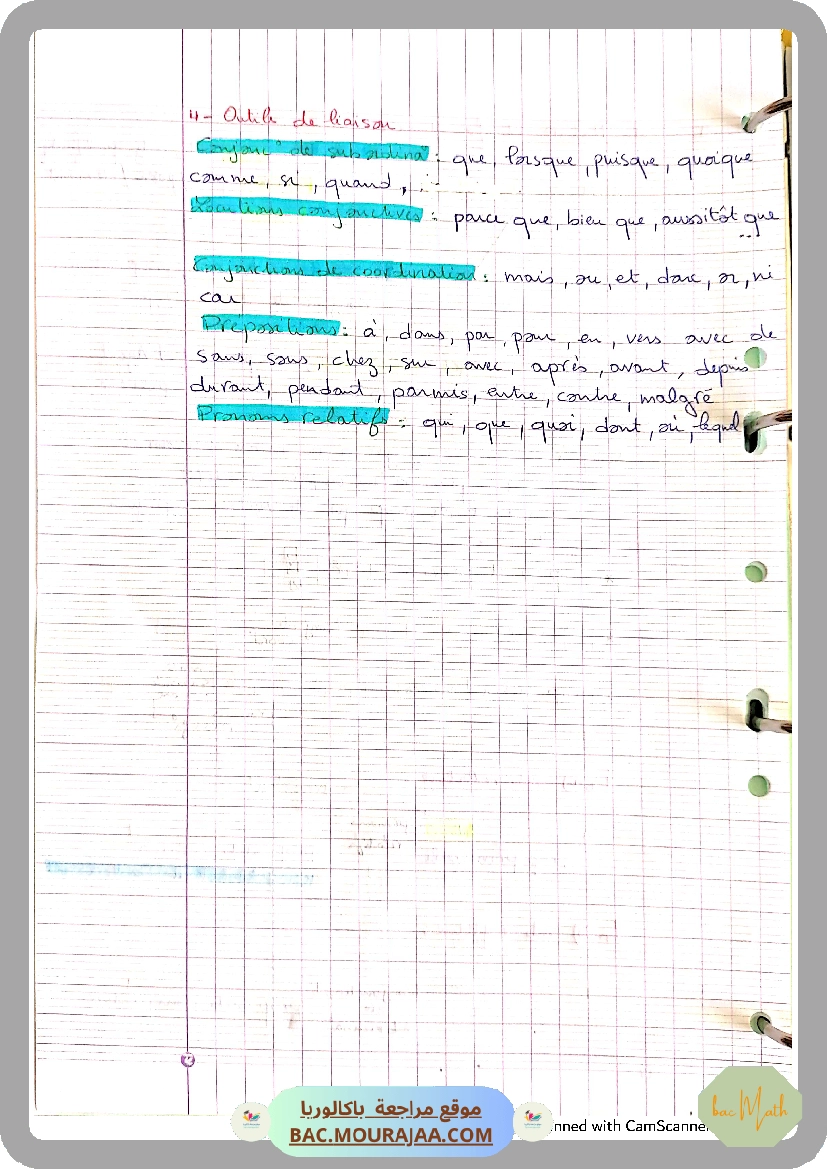 4- Outils de liaison
Conjonc° de subordina° : que, lorsque, puisque, quoique
comme, si, quand, ...
Locutions conjonctives : parce que, bien que, aussitôt que
...
Conjonctions de coordination : mais, ou, et, donc, or, ni
car
Prépositions : à, dans, par, pour, en, vers avec de
sans, sous, chez, sur, avec, après, avant, depuis
durant, pendant, parmis, entre, contre, malgré
Pronoms relatifs : qui, que, quoi, dont, où, lequel
موقع مراجعة باكالوريا
BAC.MOURAJAA.COM
nned with CamScanner
bac Math